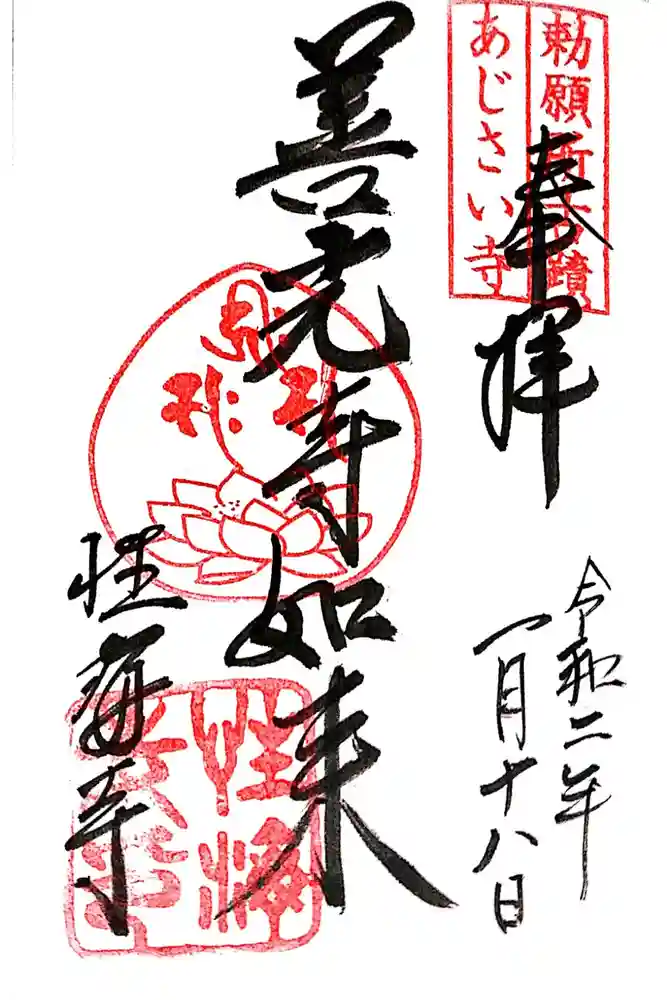 勅願所古蹟
あじさい寺
奉拝
令和二年
一月十八日
善光寺如来
性海寺
性海